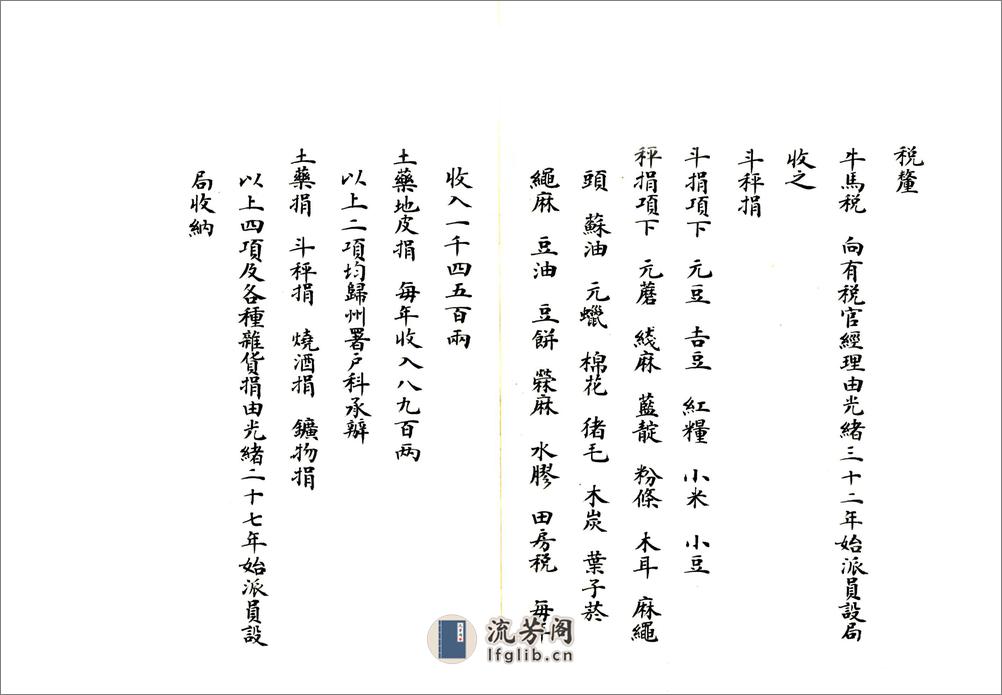 税釐
牛馬税 向有税官經理由光緒三十二年始派員設局
收之
斗秤捐
斗捐項下 元豆 吉豆 紅糧 小米 小豆
秤捐項下 元蘑 綫麻 藍靛 粉條 木耳 麻繩
頭 蘇油 元蠟 棉花 猪毛 木炭 葉子菸
繩麻 豆油 豆餅 檾麻 水膠 田房税 每年
收入一千四五百兩
土藥地皮捐 每年收入八九百两
以上二項均歸州署户科承辦
土藥捐 斗秤捐 燒酒捐 鑛物捐
以上四項及各種雜貨捐由光緒二十七年始派員設
局收納
流芳阁
lfglib.cn